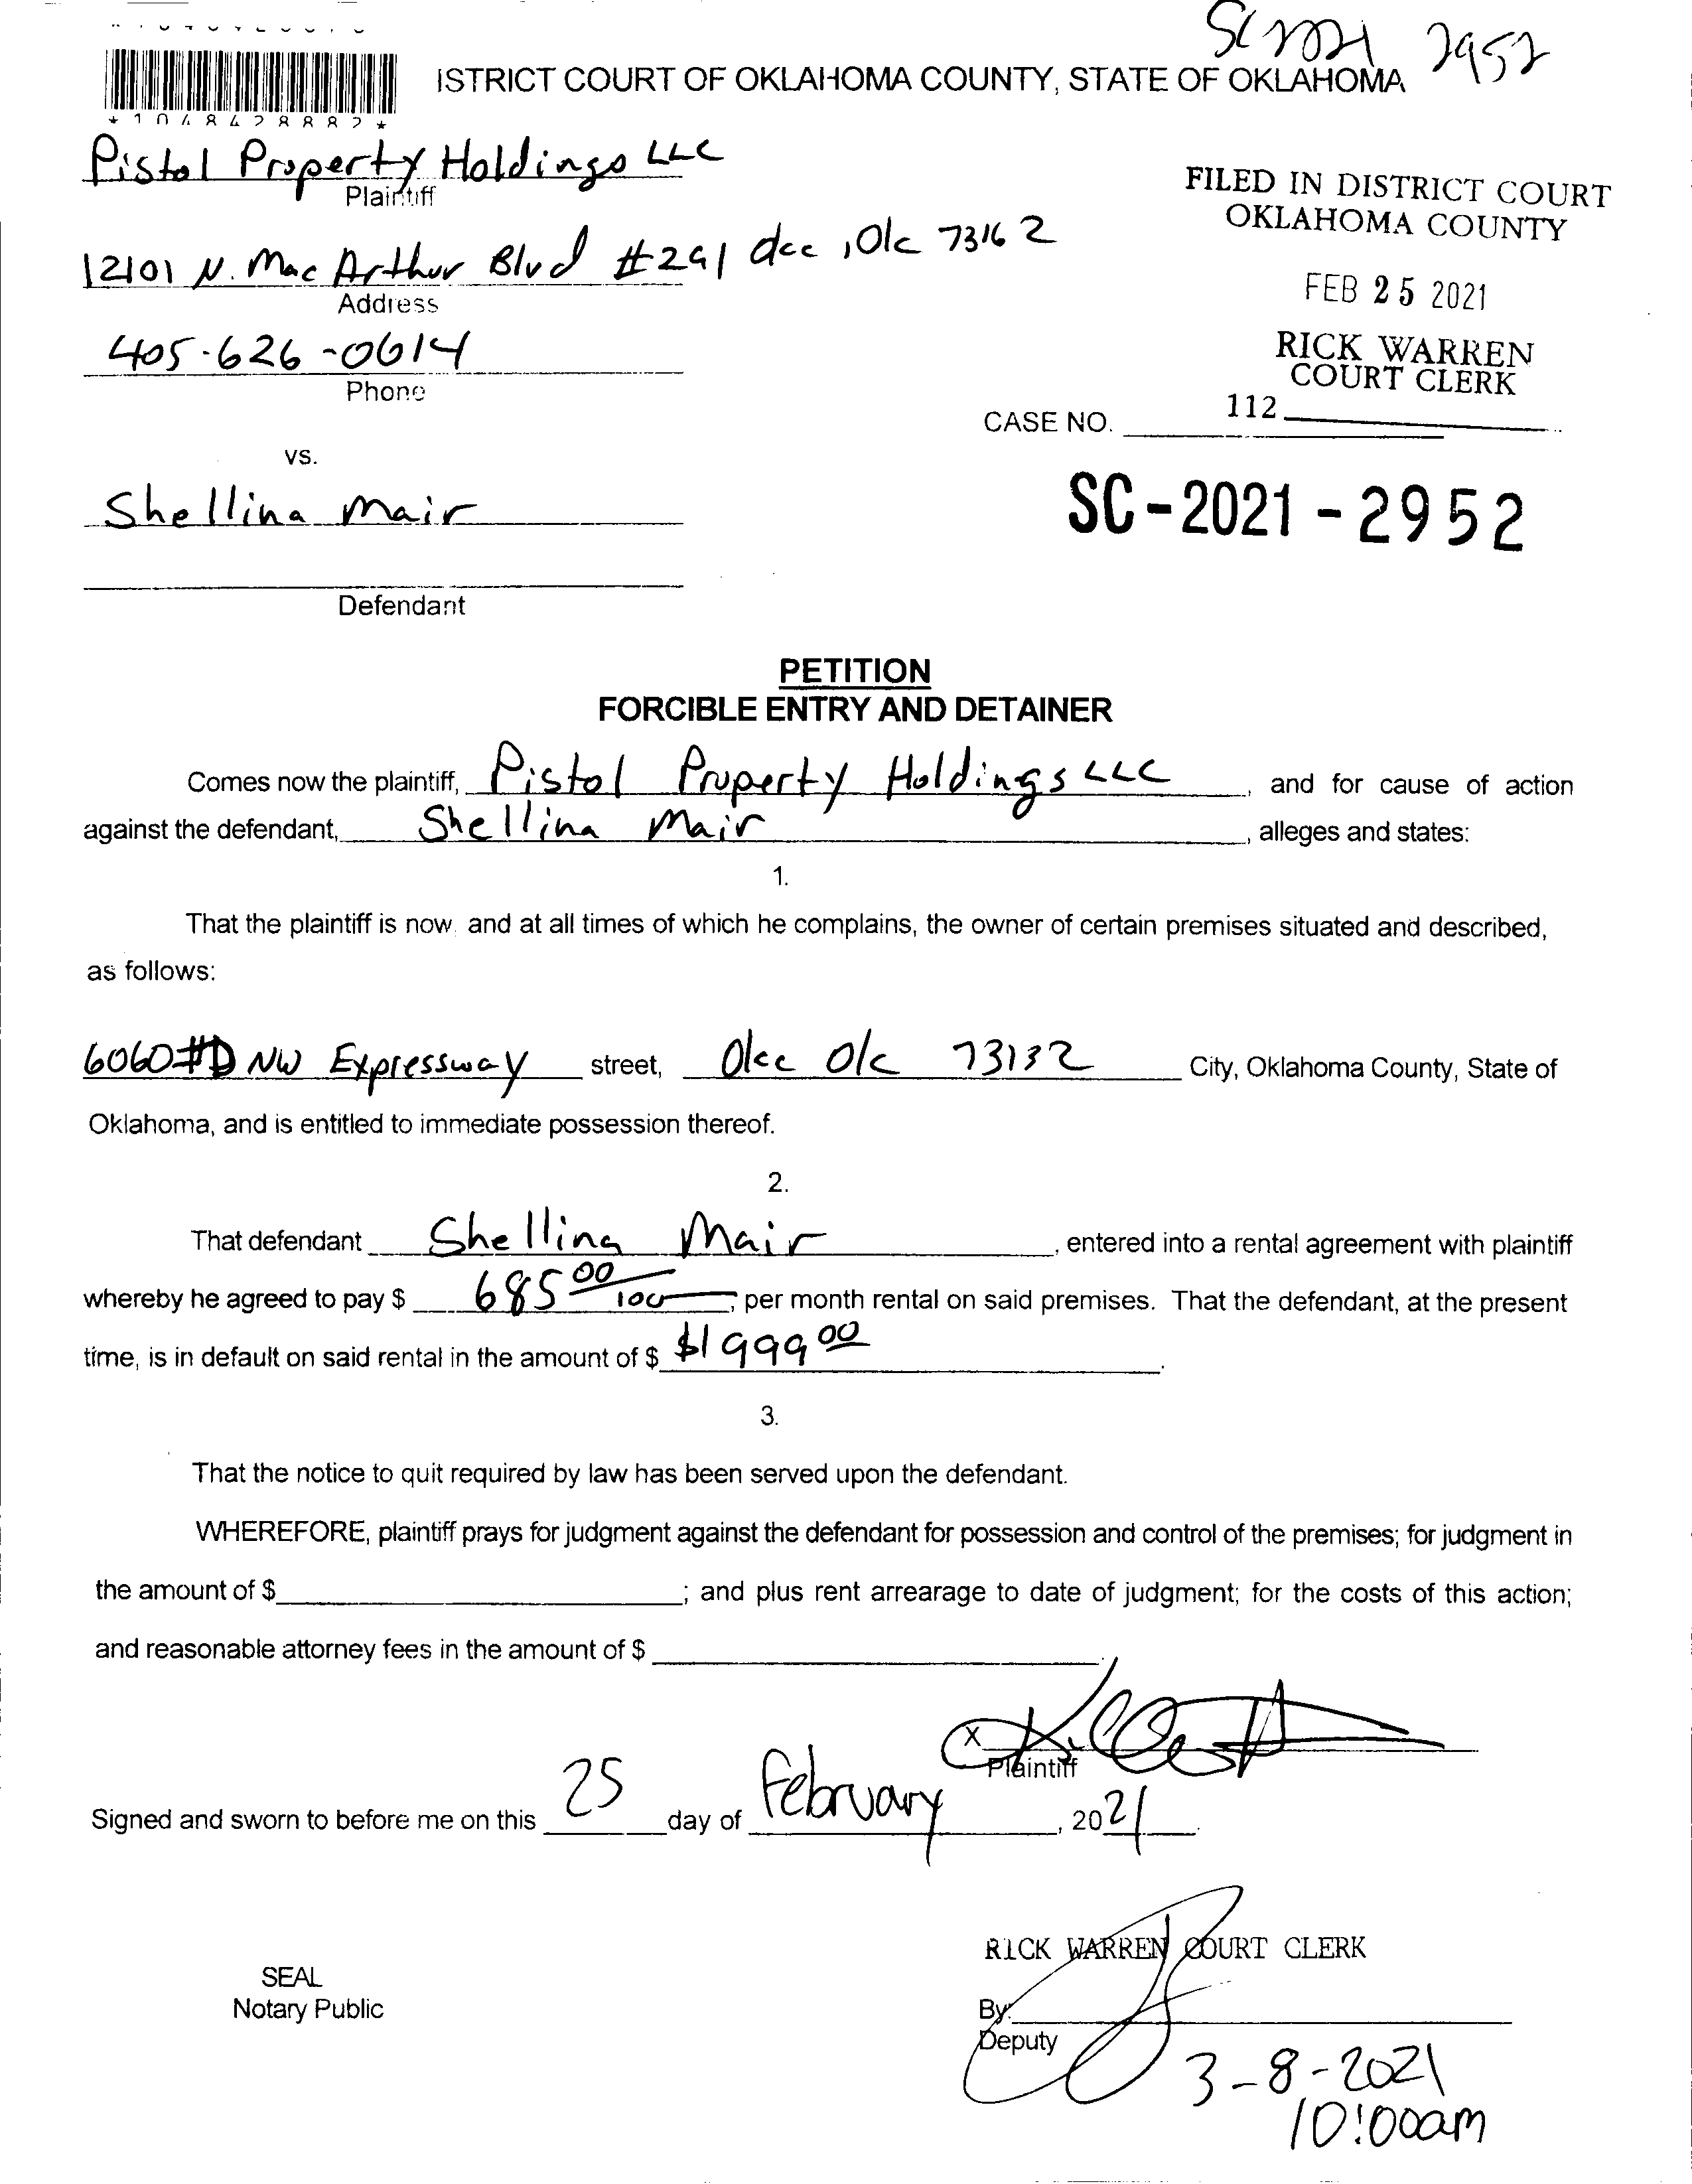 SC 2021 2952
ISTRICT COURT OF OKLAHOMA COUNTY, STATE OF OKLAHOMA
*1048428882*
Pistol Property Holdings LLC
Plaintiff
FILED IN DISTRICT COURT
OKLAHOMA COUNTY
12101 N. MacArthur Blvd #291 Occ, Ok 73162
Address
FEB 25 2021
405-626-0614
Phone
RICK WARREN
COURT CLERK
CASE NO. 112
vs.
Shellina Mair
SC-2021-2952
Defendant
PETITION
FORCIBLE ENTRY AND DETAINER
Comes now the plaintiff, Pistol Property Holdings LLC, and for cause of action
against the defendant, Shellina Mair, alleges and states:
1.
That the plaintiff is now and at all times of which he complains, the owner of certain premises situated and described,
as follows:
6060 #D NW Expressway street, Okc Ok 73132 City, Oklahoma County, State of
Oklahoma, and is entitled to immediate possession thereof.
2.
That defendant Shellina Mair, entered into a rental agreement with plaintiff
whereby he agreed to pay $ 685 00/100, per month rental on said premises. That the defendant, at the present
time, is in default on said rental in the amount of $ $1999 00.
3.
That the notice to quit required by law has been served upon the defendant.
WHEREFORE, plaintiff prays for judgment against the defendant for possession and control of the premises; for judgment in
the amount of $ ; and plus rent arrearage to date of judgment; for the costs of this action;
and reasonable attorney fees in the amount of $ .
X
Plaintiff
Signed and sworn to before me on this 25 day of February, 2021.
RICK WARREN COURT CLERK
SEAL
Notary Public
By:
Deputy
3-8-2021
10:00am